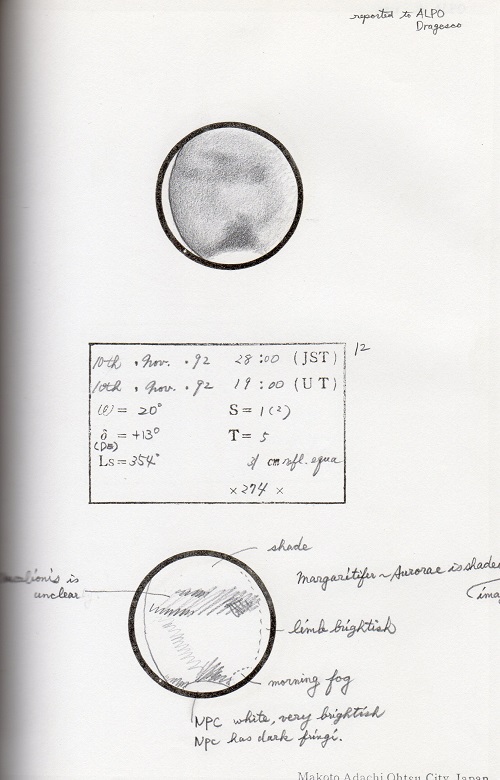 reported to ALPO
Dragesco
10th . Nov. . 92 28:00 (JST)
12
10th . Nov. . 92 19:00 (UT)
ω = 20° S = 1(2)
δ = +13° T = 5
(DE)
Ls=354° cm refl. equa
×274 ×
shade
is
unclear
Margaritifer ~ Aurorae is shade
limb brightish
morning fog
NPC white, very brightish
Npc has dark fringi.
Makoto Adachi Ohtsu City, Japan